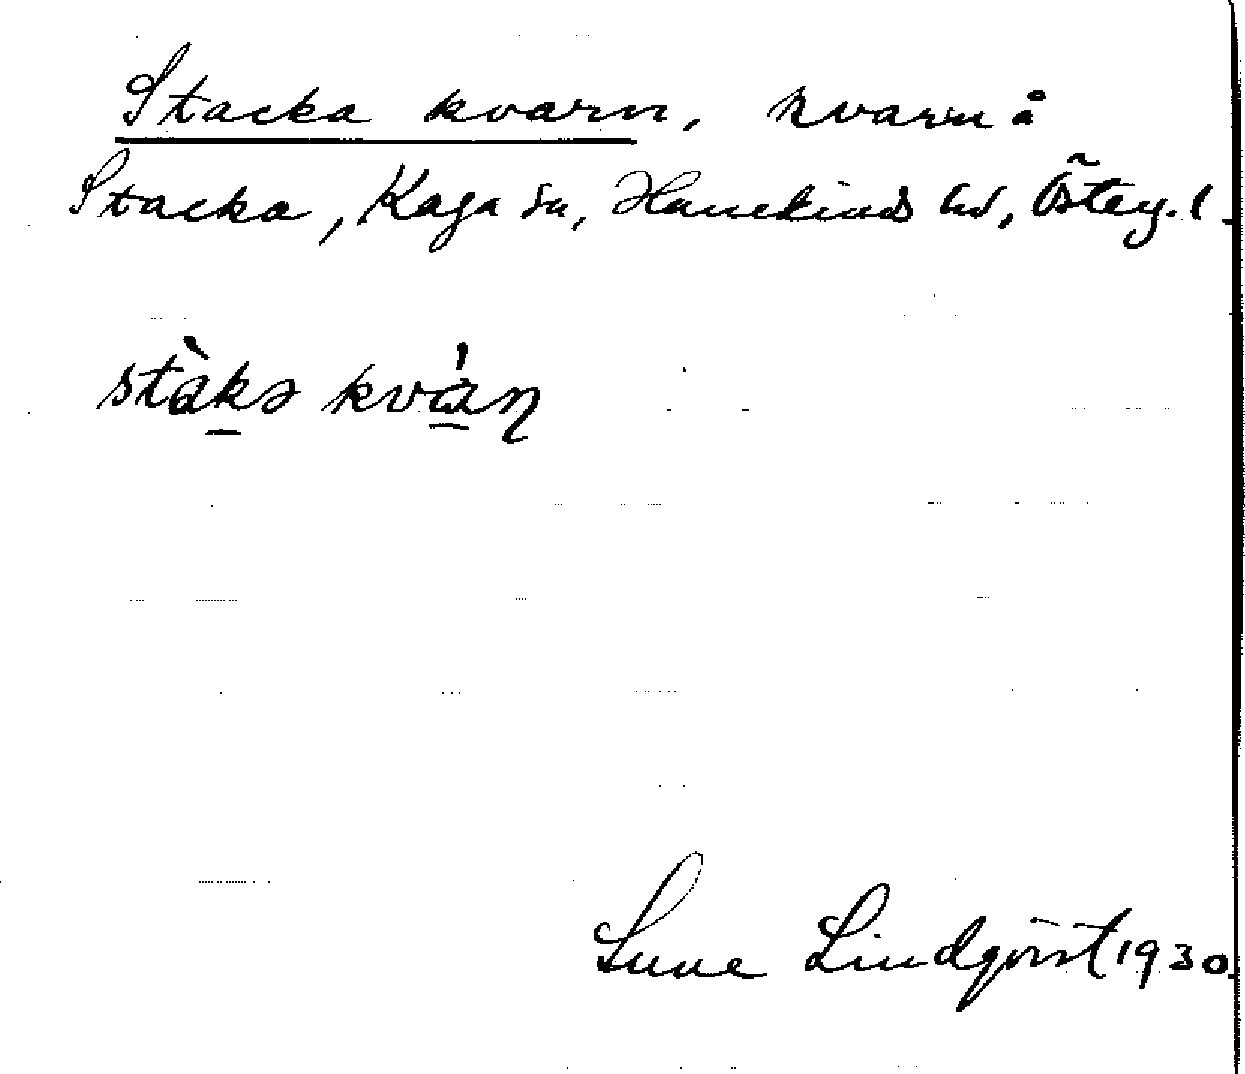 Stacka kvarn, kvarn å
Stacka, Kaga sn, Hanekinds hd, Österg. l.
stàkə kván
Sune Lindqvist 1930